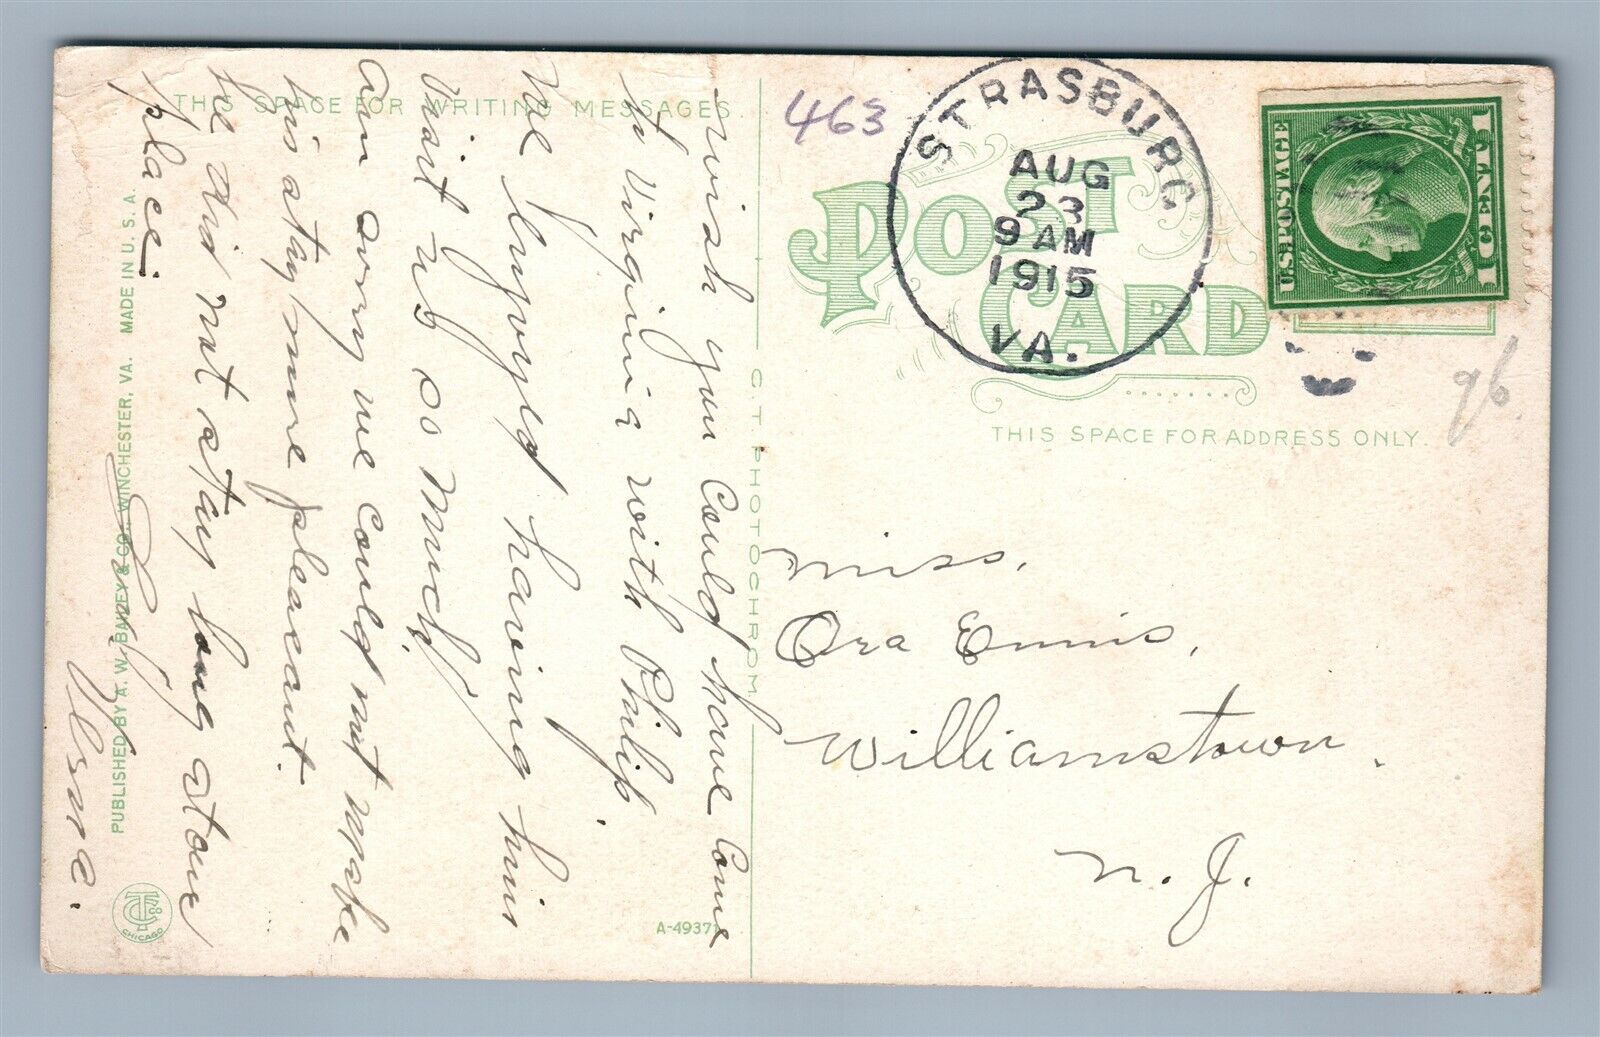 THIS SPACE FOR WRITING MESSAGES.
wish you Could have Come
to Virginia with Philip.
We enjoyed having him
visit us so much,
am sorry we could not make
his stay more pleasant.
he did not stay long at our
place.
Verna.
PUBLISHED BY A. W. BAILEY & CO., WINCHESTER, VA. MADE IN U. S. A.
CHICAGO
A-49371
C. T. PHOTOCHROM
463
STRASBURG
AUG
23
9 AM
1915
VA.
U.S. POSTAGE
1 CENT 1
96.
POST CARD
THIS SPACE FOR ADDRESS ONLY.
Miss,
Ora Ennis,
Williamstown.
N. J.